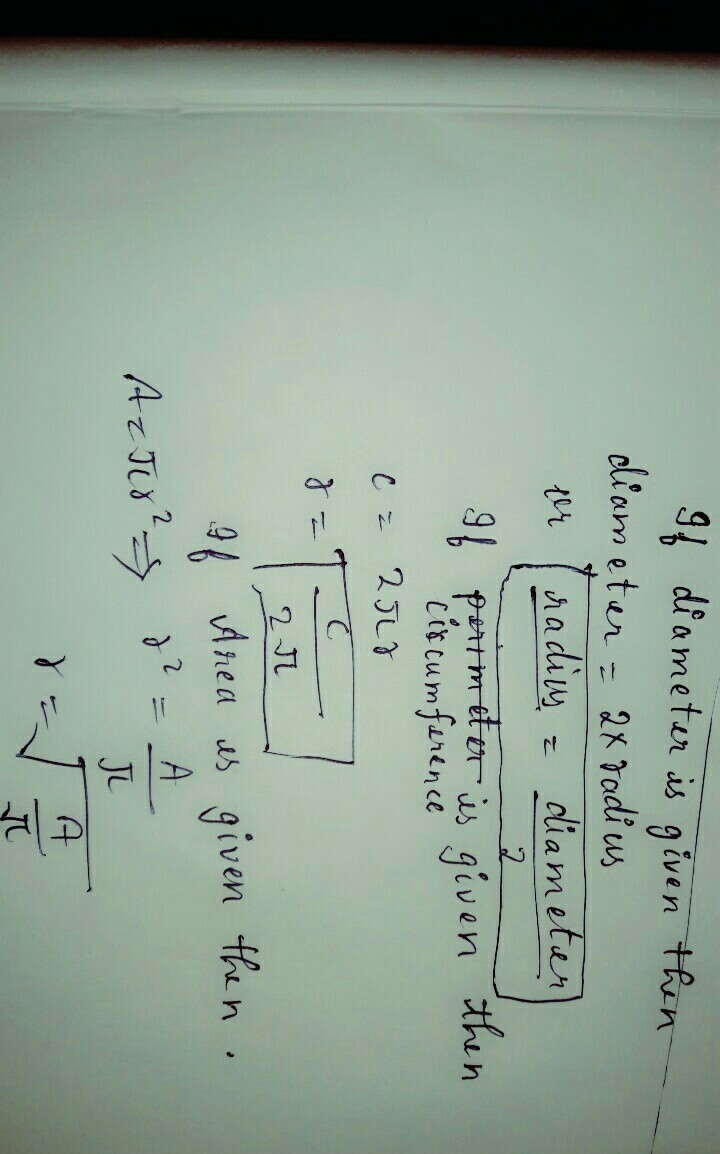 If diameter is given then
diameter = 2 x radius
or radius = diameter / 2
If perimeter is given then
circumference
C = 2πr
r = C / 2π
If Area is given then.
A = πr² ⇒ r² = A / π
r = √(A / π)